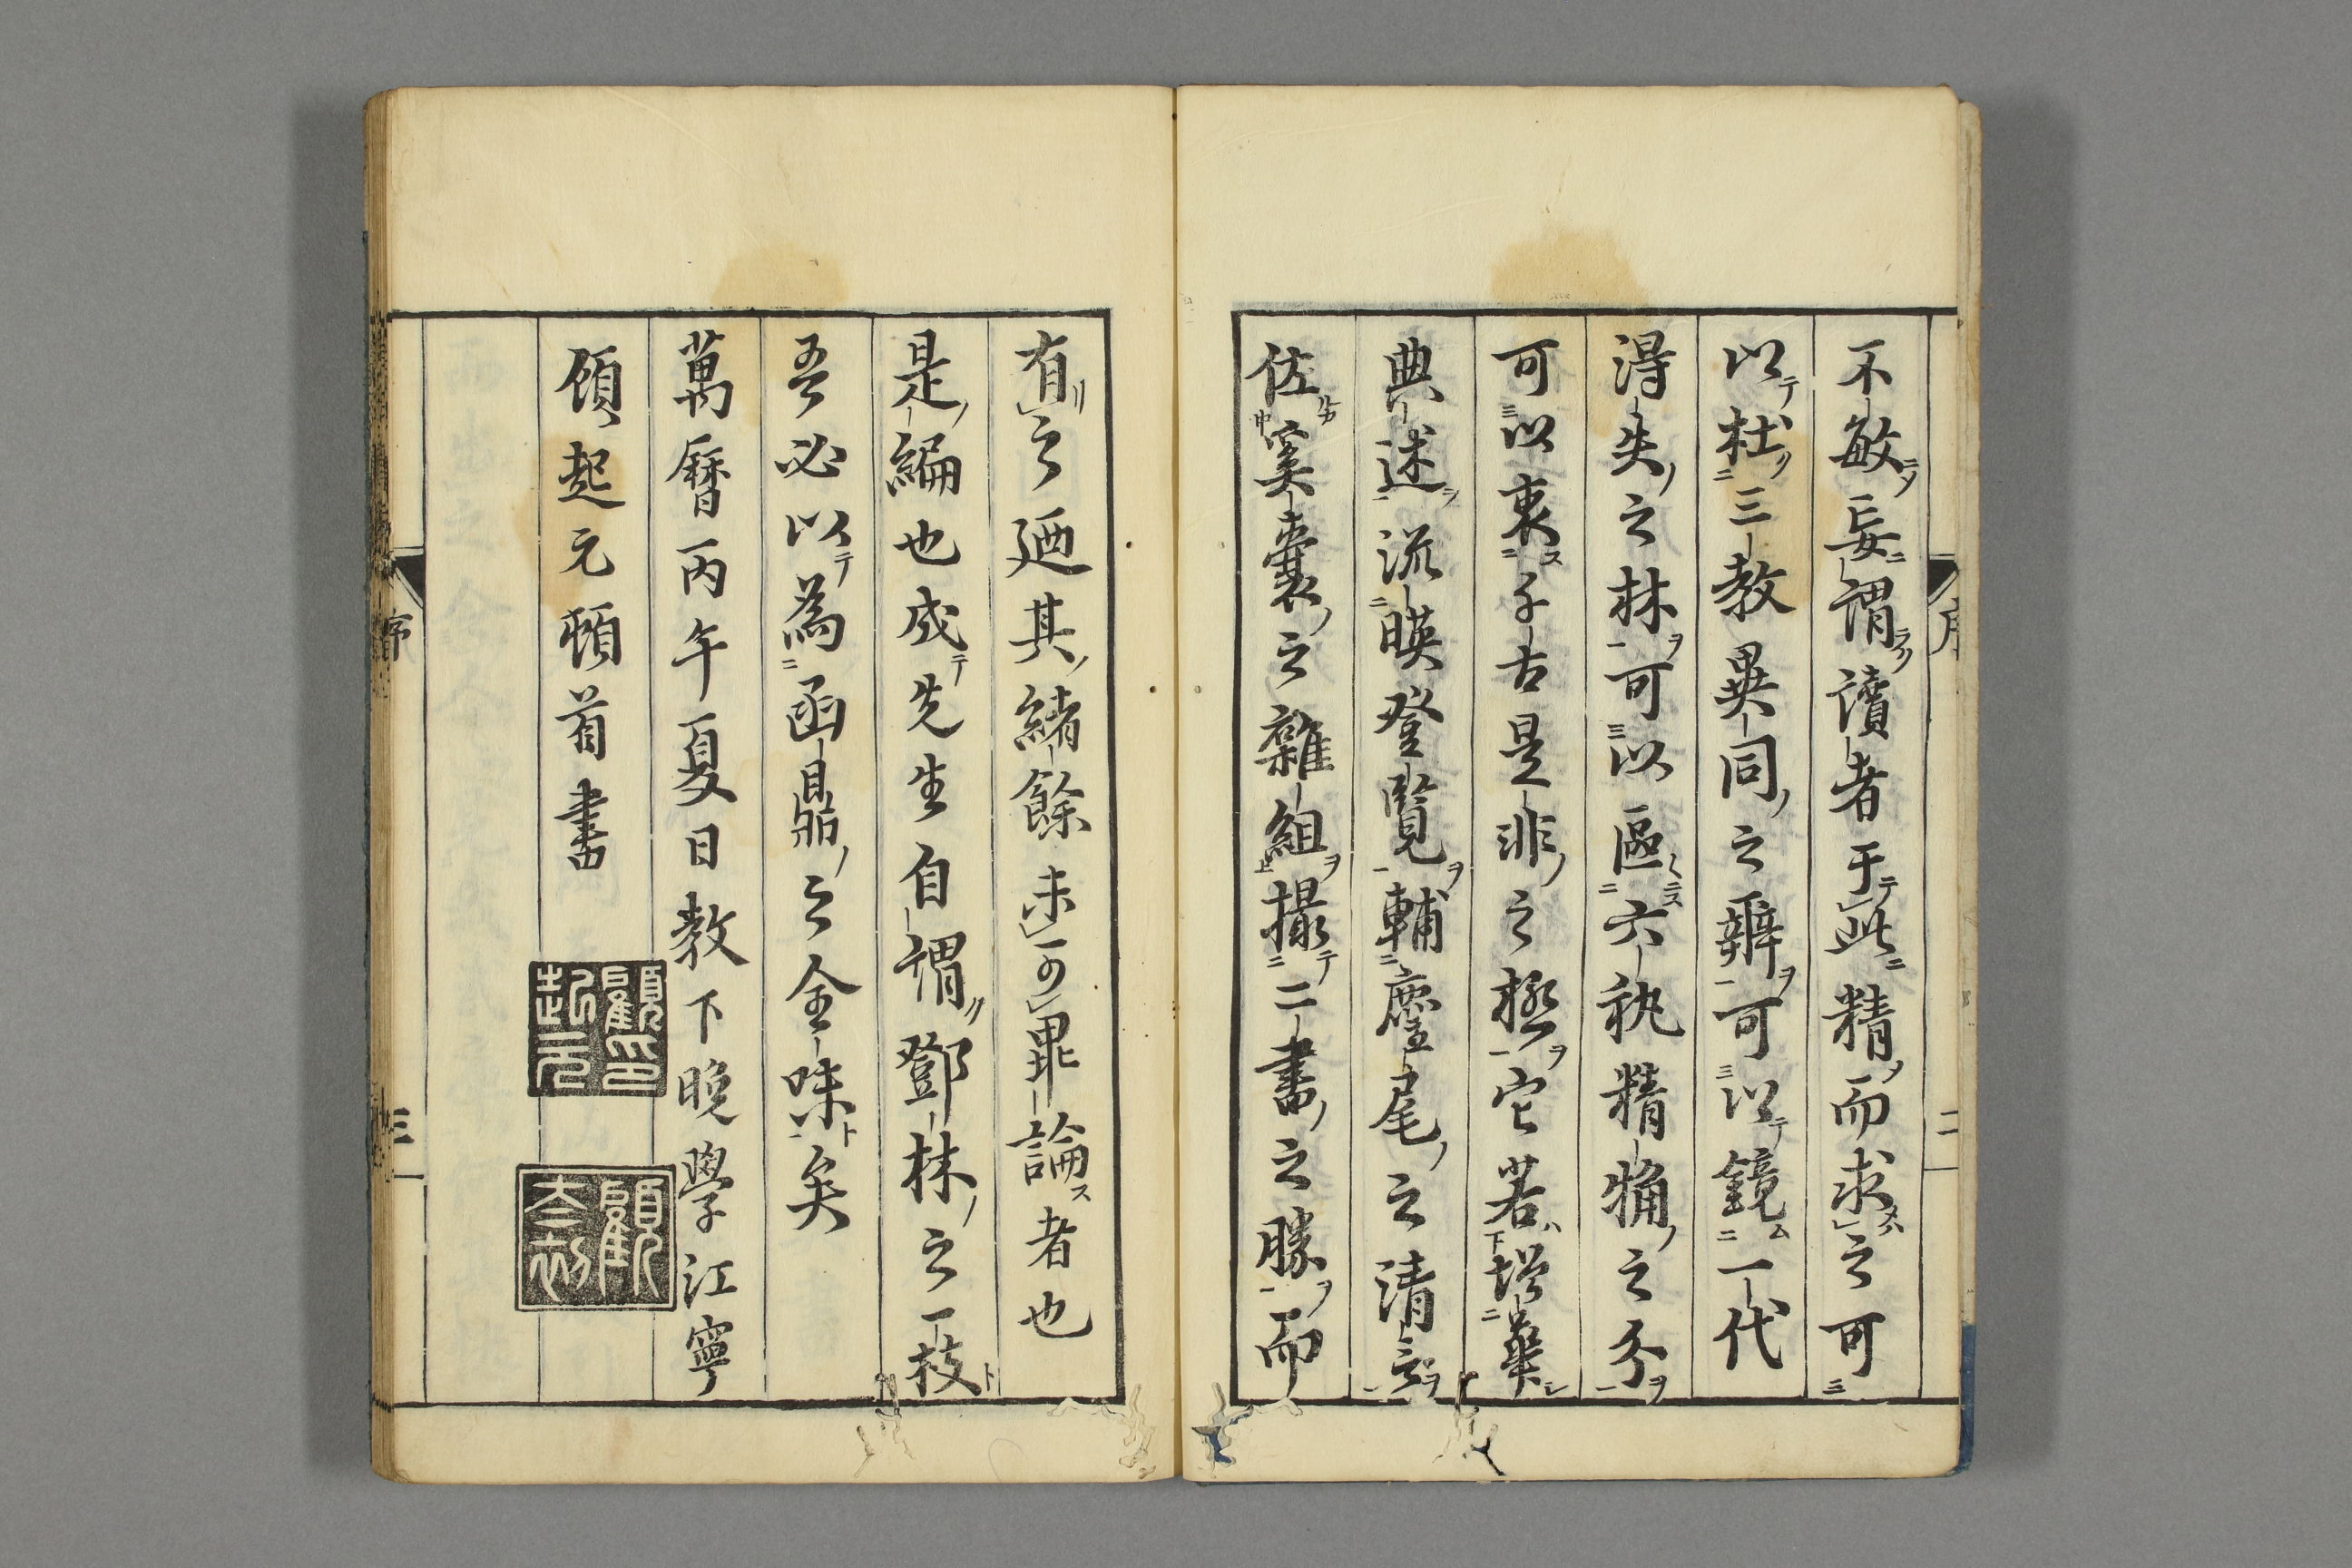 不敏妄謂讀者于此精而求之可
以杜三教異同之辯可以鏡一代
得失之林可以區六秇精觕之介
可以衷千古是非之極它若增華
典述流暎登覽輔麈尾之清言
佐奚囊之雜組撮二書之勝而
有之廼其緒餘未可畢論者也
是編也成先生自謂鄧林之一枝
吾必以為函鼎之全味矣
萬曆丙午夏日教下晚學江寧
顧起元頓首書
顧印起元
顧太初
序
二
序
三